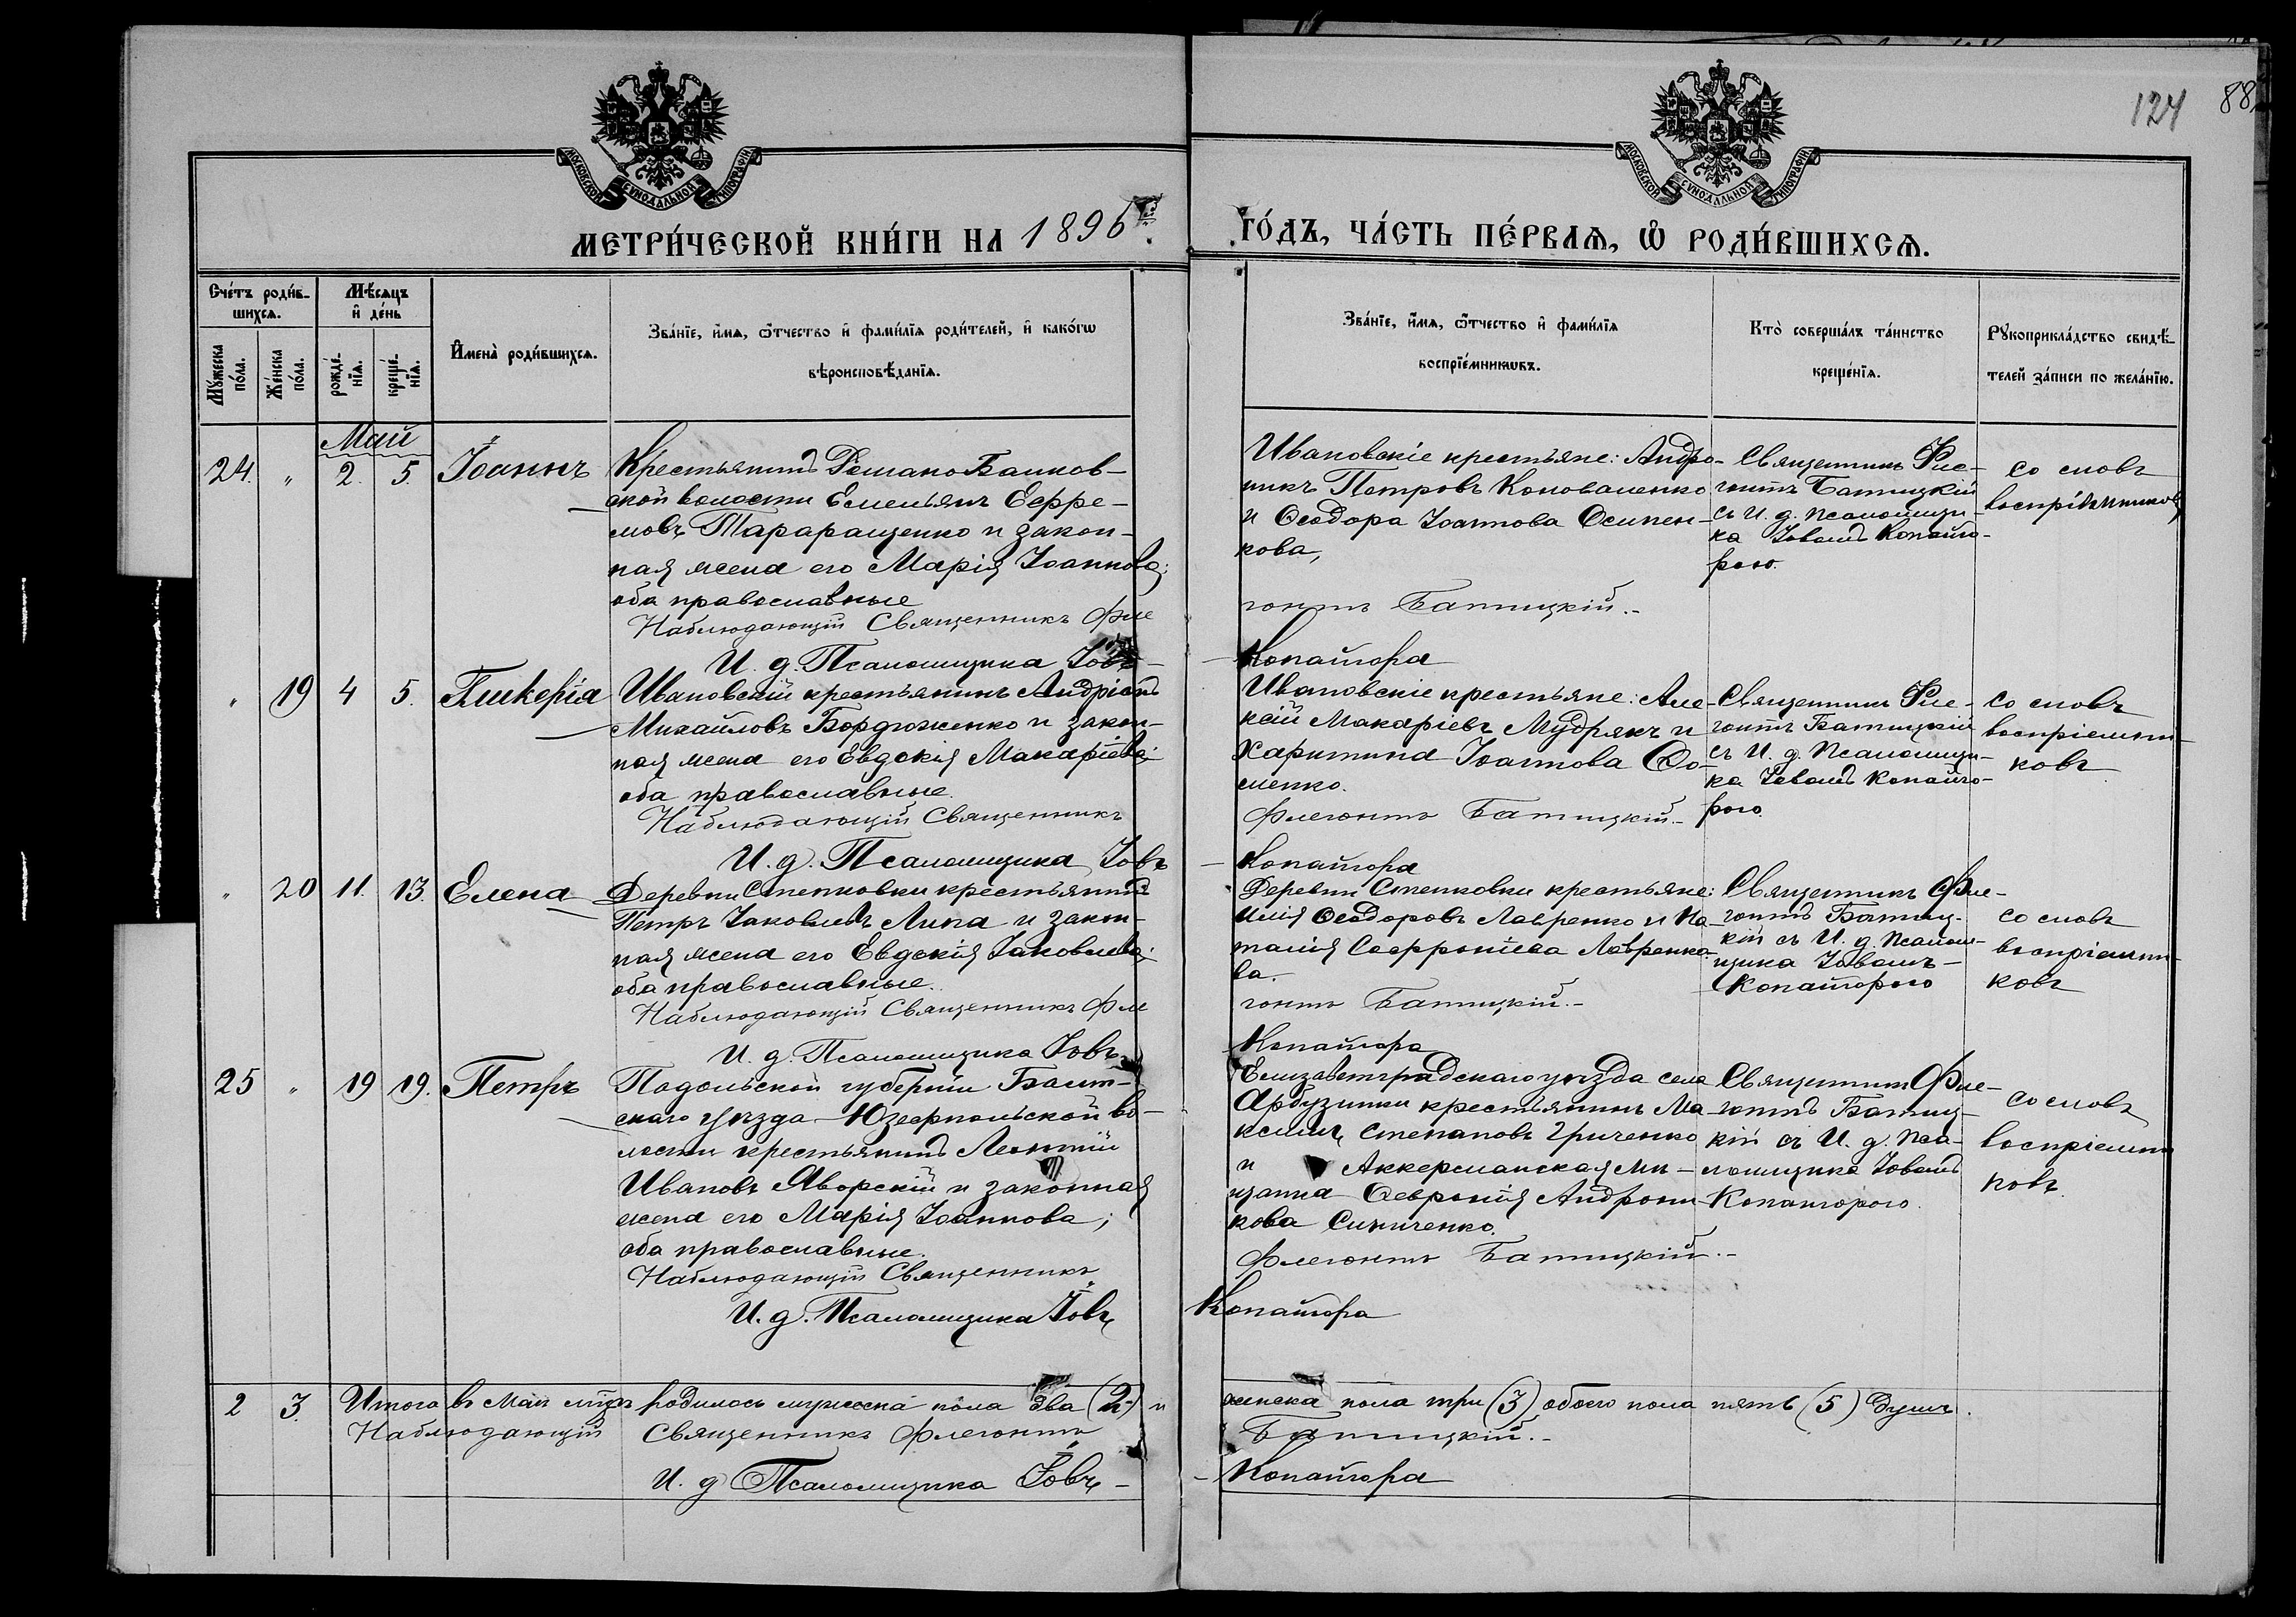 124 88
МОСКОВСКОЙ СѴНОДАЛЬНОЙ ТИПОГРАФІИ
МОСКОВСКОЙ СѴНОДАЛЬНОЙ ТИПОГРАФІИ
МЕТРИ́ЧЕСКОЙ КНИ́ГИ НА 1896
ГО́ДЪ, ЧА́СТЬ ПЕ́РВАѦ, Ѡ҆ РОДИ́ВШИХСѦ.
Сче́тъ роди́в-
шихсѧ.
Мꙋ́жеска по́ла.
Же́нска по́ла.
Мѣ́сѧцъ и҆ де́нь
рожде́-
нїѧ.
креще́-
нїѧ.
И҆мена̀ роди́вшихсѧ.
Зва́нїе, и҆́мѧ, ѻ҆́тчество и҆ фами́лїѧ роди́телей, и҆ како́гѡ
вѣроисповѣ́данїѧ.
Зва́нїе, и҆́мѧ, ѻ҆́тчество и҆ фами́лїѧ
воспрїе́мникѡвъ.
Кто̀ соверша́лъ та́инство
креще́нїѧ.
Рꙋкоприкла́дство свидѣ́-
телей за́писи по жела́нїю.
Май
24. " 2. 5. Іоаннъ
Крестьянинъ Романо Балков-
ской волости Емельянъ Ефре-
мовъ Тараращенко и закон-
ная жена его Марія Іоаннова;
оба православные
Наблюдающій Священникъ Фле
И. д. Псаломщика Іовъ
Ивановскіе крестьяне: Андро-
никъ Петровъ Коноваленко
и Ѳеодора Іоаннова Осипен-
кова,
гонтъ Батицкій.-
Копайгора
Священникъ Фле-
гонтъ Батицкій
съ И. д. псаломщи-
ка Іовомъ Копайго-
рою.
со словъ
воспріемниковъ
" 19 4 5. Гликерія
Ивановскій крестьянинъ Андріанъ
Михайловъ Бордюженко и закон-
ная жена его Евдокія Макаріева;
оба православные.
Наблюдающій Священникъ
И. д. Псаломщика Іовъ
Ивановскіе крестьяне: Але-
ксій Макаріевъ Мудрякъ и
Харитина Іоаннова Ѳо-
менко.
Флегонтъ Батицкій.-
Копайгора
Священникъ Фле-
гонтъ Батицкій
съ И. д. Псаломщи-
ка Іовомъ Копайго-
рою.
Со словъ
воспріемни-
ковъ
" 20 11. 13. Елена
Деревни Степковки крестьянинъ
Петръ Іаковлевъ Липа и закон-
ная жена его Евдокія Іаковлева;
оба православные.
Наблюдающій Священникъ Фле
И. д. Псаломщика Іовъ
Деревни Степковки крестьяне:
Илія Ѳеодоровъ Лавренко и На-
талія Софроніева Лавренко-
ва.
гонтъ Батицкій.-
Копайгора
Священникъ Фле-
гонтъ Батиц-
кій съ И. д. псалом-
щика Іовомъ-
Копайгорою
со словъ
воспріемни-
ковъ
25 " 19 19. Петръ
Подольской губерніи Балт-
скаго уѣзда Юзефпольской во-
лости крестьянинъ Леонтій
Ивановъ Яворскій и законная
жена его Марія Іоаннова;
оба православные.
Наблюдающій Священникъ
И. д. Псаломщика Іовъ
Елизаветградскаго уѣзда села
Арбузинки крестьянинъ Ма-
ксимъ Степановъ Гриченко
и Аккерманская мѣ-
щанка Ѳевронія Андрони-
кова Синиченко.
Флегонтъ Батицкій.-
Копайгора
Священникъ Фле-
гонтъ Батиц-
кій съ И. д. Пса-
ломщика Іовомъ
Копайгорою.
Со словъ
воспріемни
ковъ.
2 3. Итого въ Маѣ мцѣ родилось мужеска пола два (2) и женска пола три (3) обоего пола пять (5) душъ.
Наблюдающій Священникъ Флегонтъ Батицкій.-
И. д. Псаломщика Іовъ - Копайгора